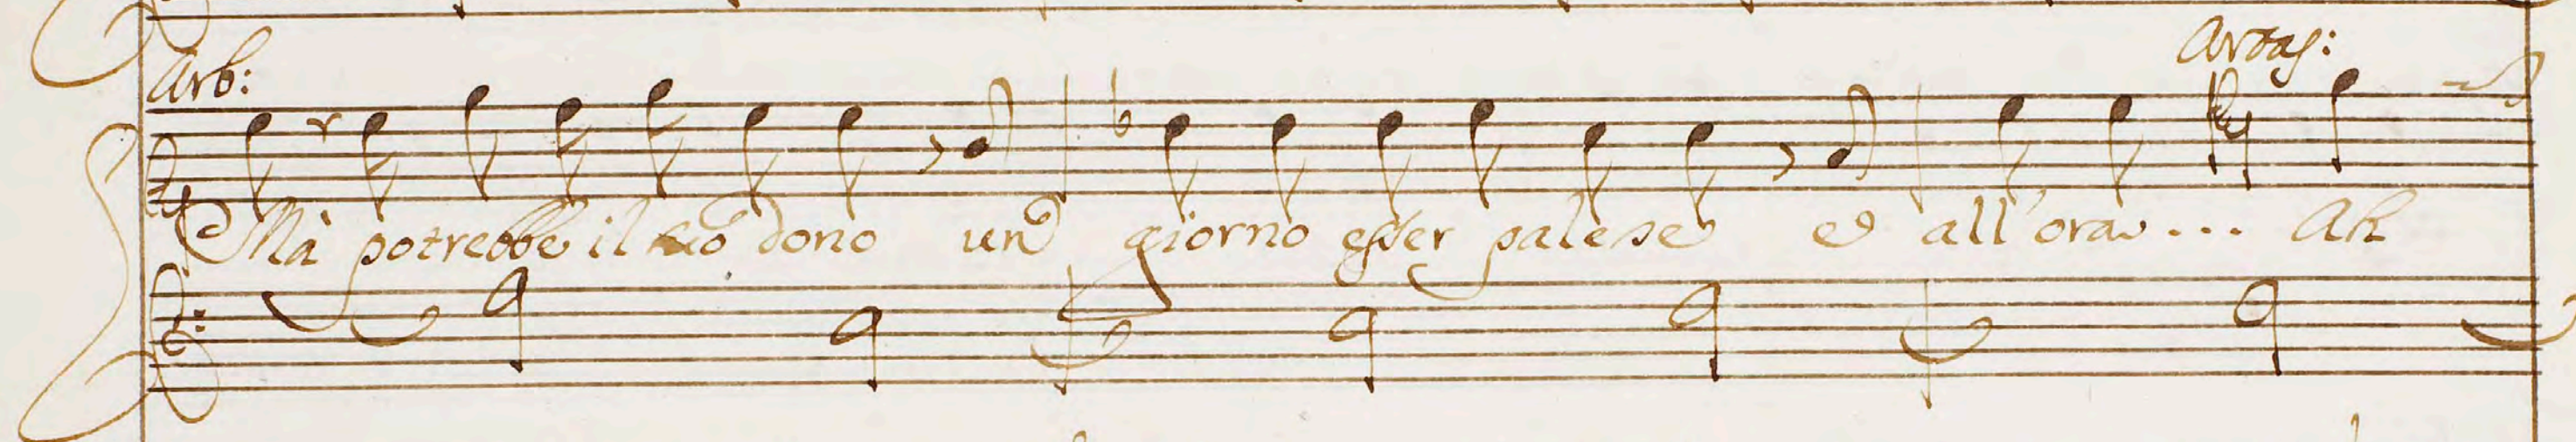 Arb:
Artas:
Mà potrebbe il tuo dono un giorno esser palese e all'ora... Ah